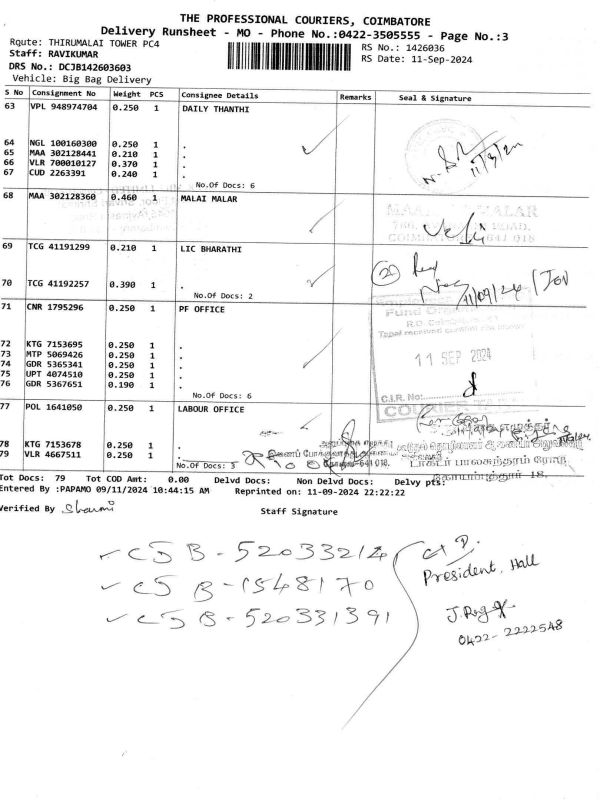 THE PROFESSIONAL COURIERS, COIMBATORE
Delivery Runsheet - MO - Phone No.:0422-3505555 - Page No.:3
Route: THIRUMALAI TOWER PC4
RS No.: 1426036
Staff: RAVIKUMAR
RS Date: 11-Sep-2024
DRS No.: DCJB142603603
Vehicle: Big Bag Delivery
S No Consignment No Weight PCS Consignee Details Remarks Seal & Signature
63 VPL 948974704 0.250 1 DAILY THANTHI
64 NGL 100160300 0.250 1 .
65 MAA 302128441 0.210 1 .
66 VLR 700010127 0.370 1 .
67 CUD 2263391 0.240 1 .
11/9/24
No.Of Docs: 6
68 MAA 302128360 0.460 1 MALAI MALAR
MALAR
ROAD,
641 018
69 TCG 41191299 0.210 1 LIC BHARATHI
70 TCG 41192257 0.390 1 .
11/09/24
No.Of Docs: 2
71 CNR 1795296 0.250 1 PF OFFICE
Fund
72 KTG 7153695 0.250 1 .
73 MTP 5069426 0.250 1 .
74 GDR 5365341 0.250 1 .
11 SEP 2024
75 UPT 4074510 0.250 1 .
76 GDR 5367651 0.190 1 .
No.Of Docs: 6
C.I.R. No:
COURIER
77 POL 1641050 0.250 1 LABOUR OFFICE
78 KTG 7153678 0.250 1 .
79 VLR 4667511 0.250 1 .
No.Of Docs: 3
டாக்டர் பாலசுந்தரம் ரோடு,
கோயம்புத்தூர் 18.
Tot Docs: 79 Tot COD Amt: 0.00 Delvd Docs: Non Delvd Docs: Delvy pts:
Entered By :PAPAMO 09/11/2024 10:44:15 AM Reprinted on: 11-09-2024 22:22:22
Verified By Sharmi
Staff Signature
CJB-52033214
CJB-1548170
CJB-520331391
President, Hall
0422-2222548